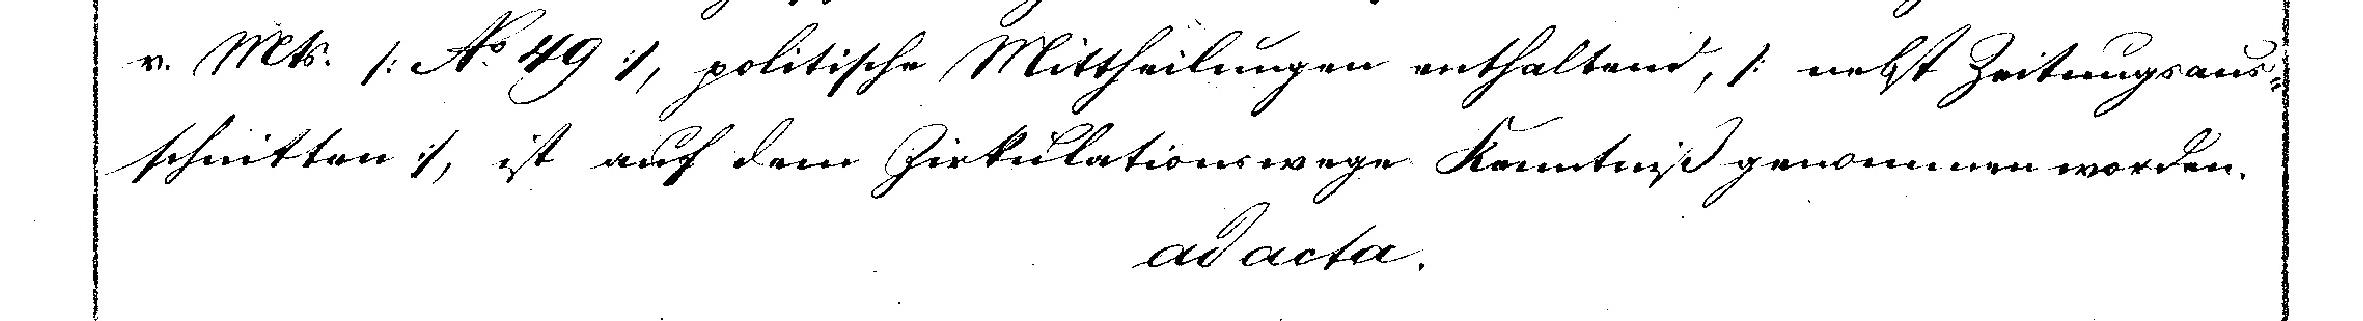 v. Mts. /: No 49 :/, politische Mittheilungen enthaltend, /: nebst Zeitungsaus=
schnitten :/, ist auf dem Zirkulationswege Kenntniß genommen worden.
ad acta.